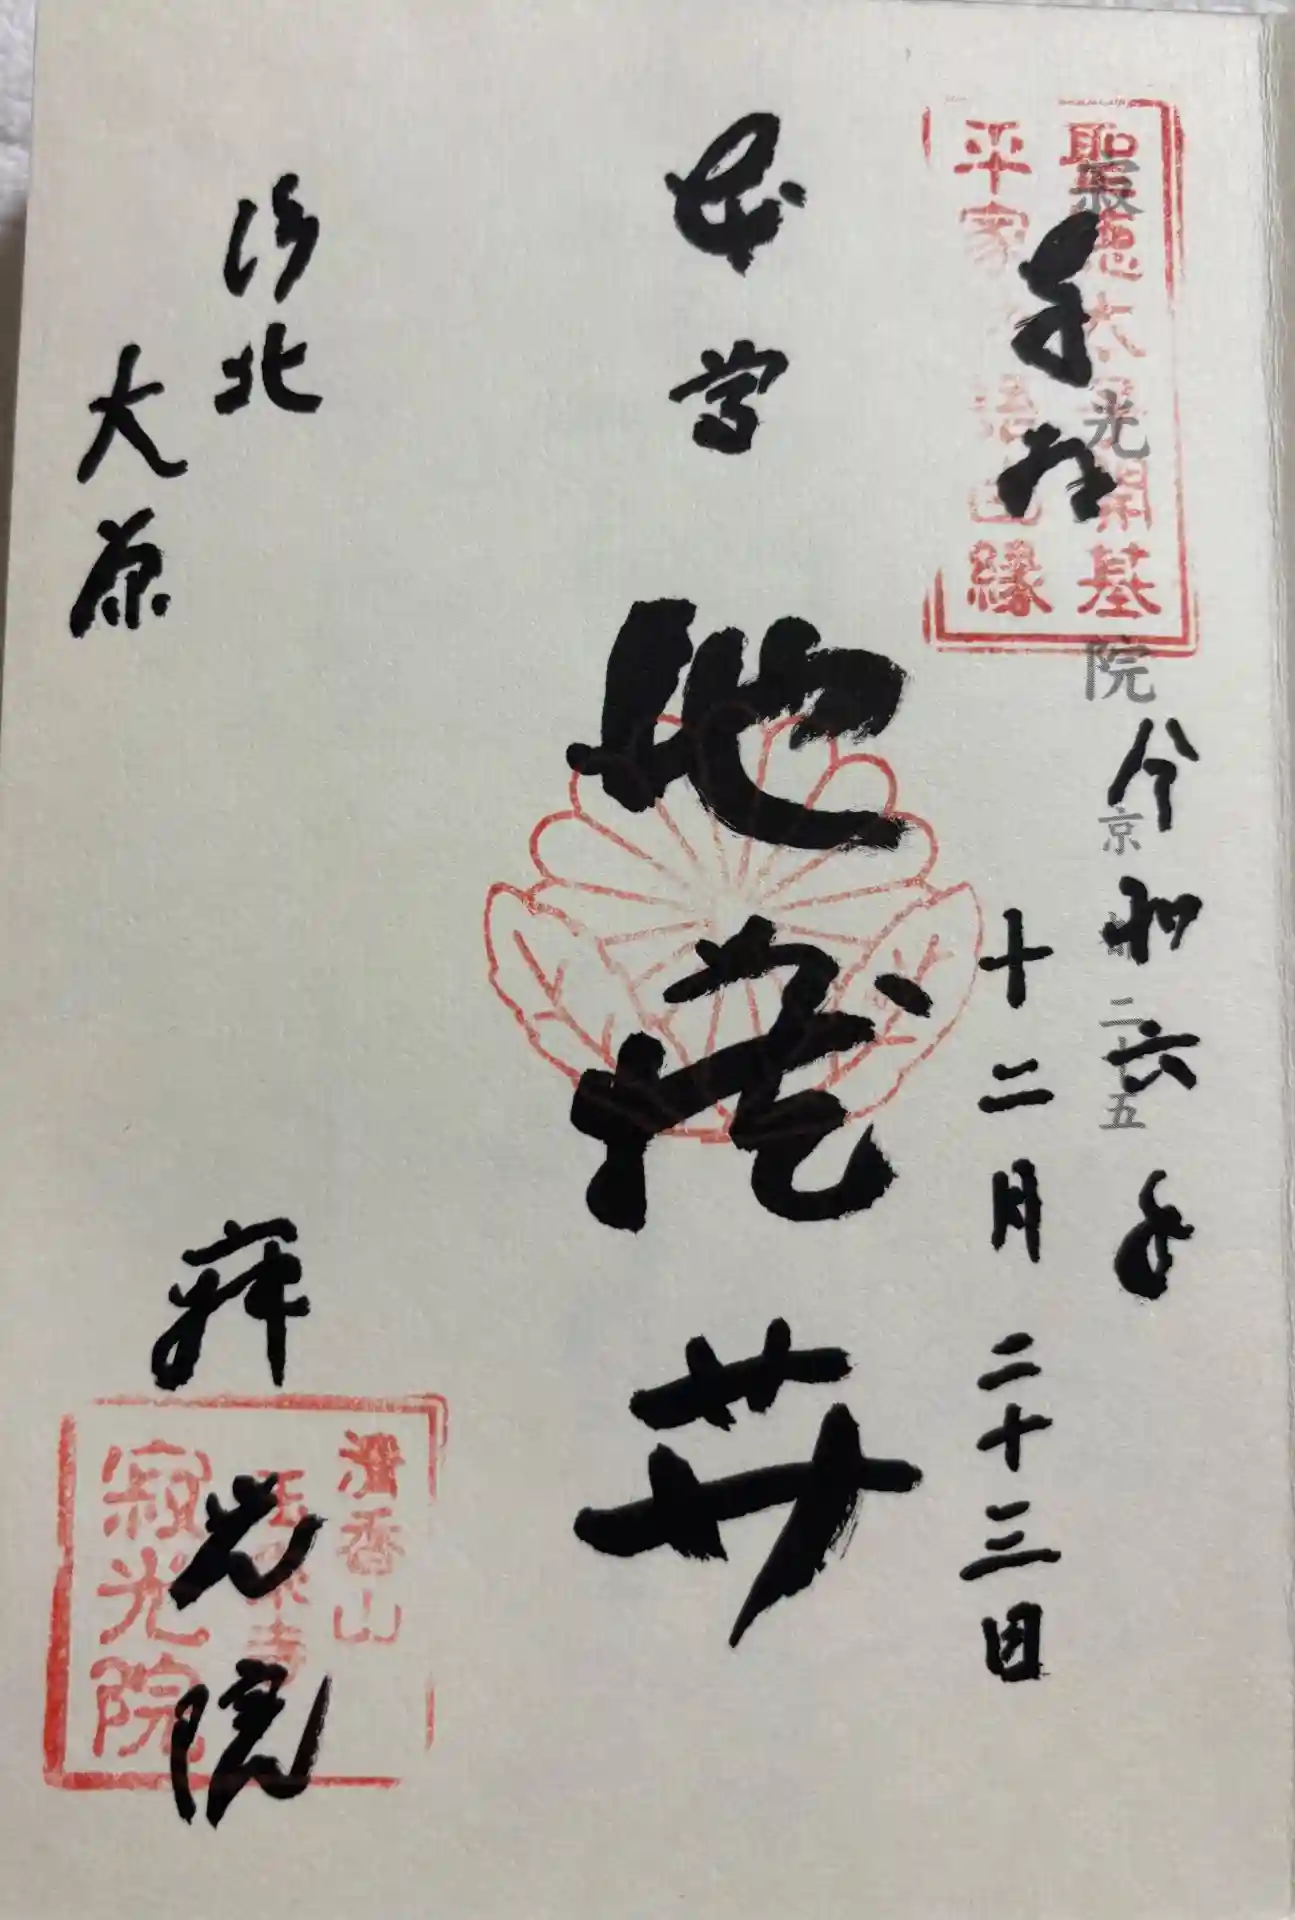 奉拝
令和六年
十二月二十三日
本尊
地蔵尊
洛北
大原
寂光院
聖徳太子開基
平家物語由縁
寂光院
京都二十五
清香山
玉泉寺
寂光院